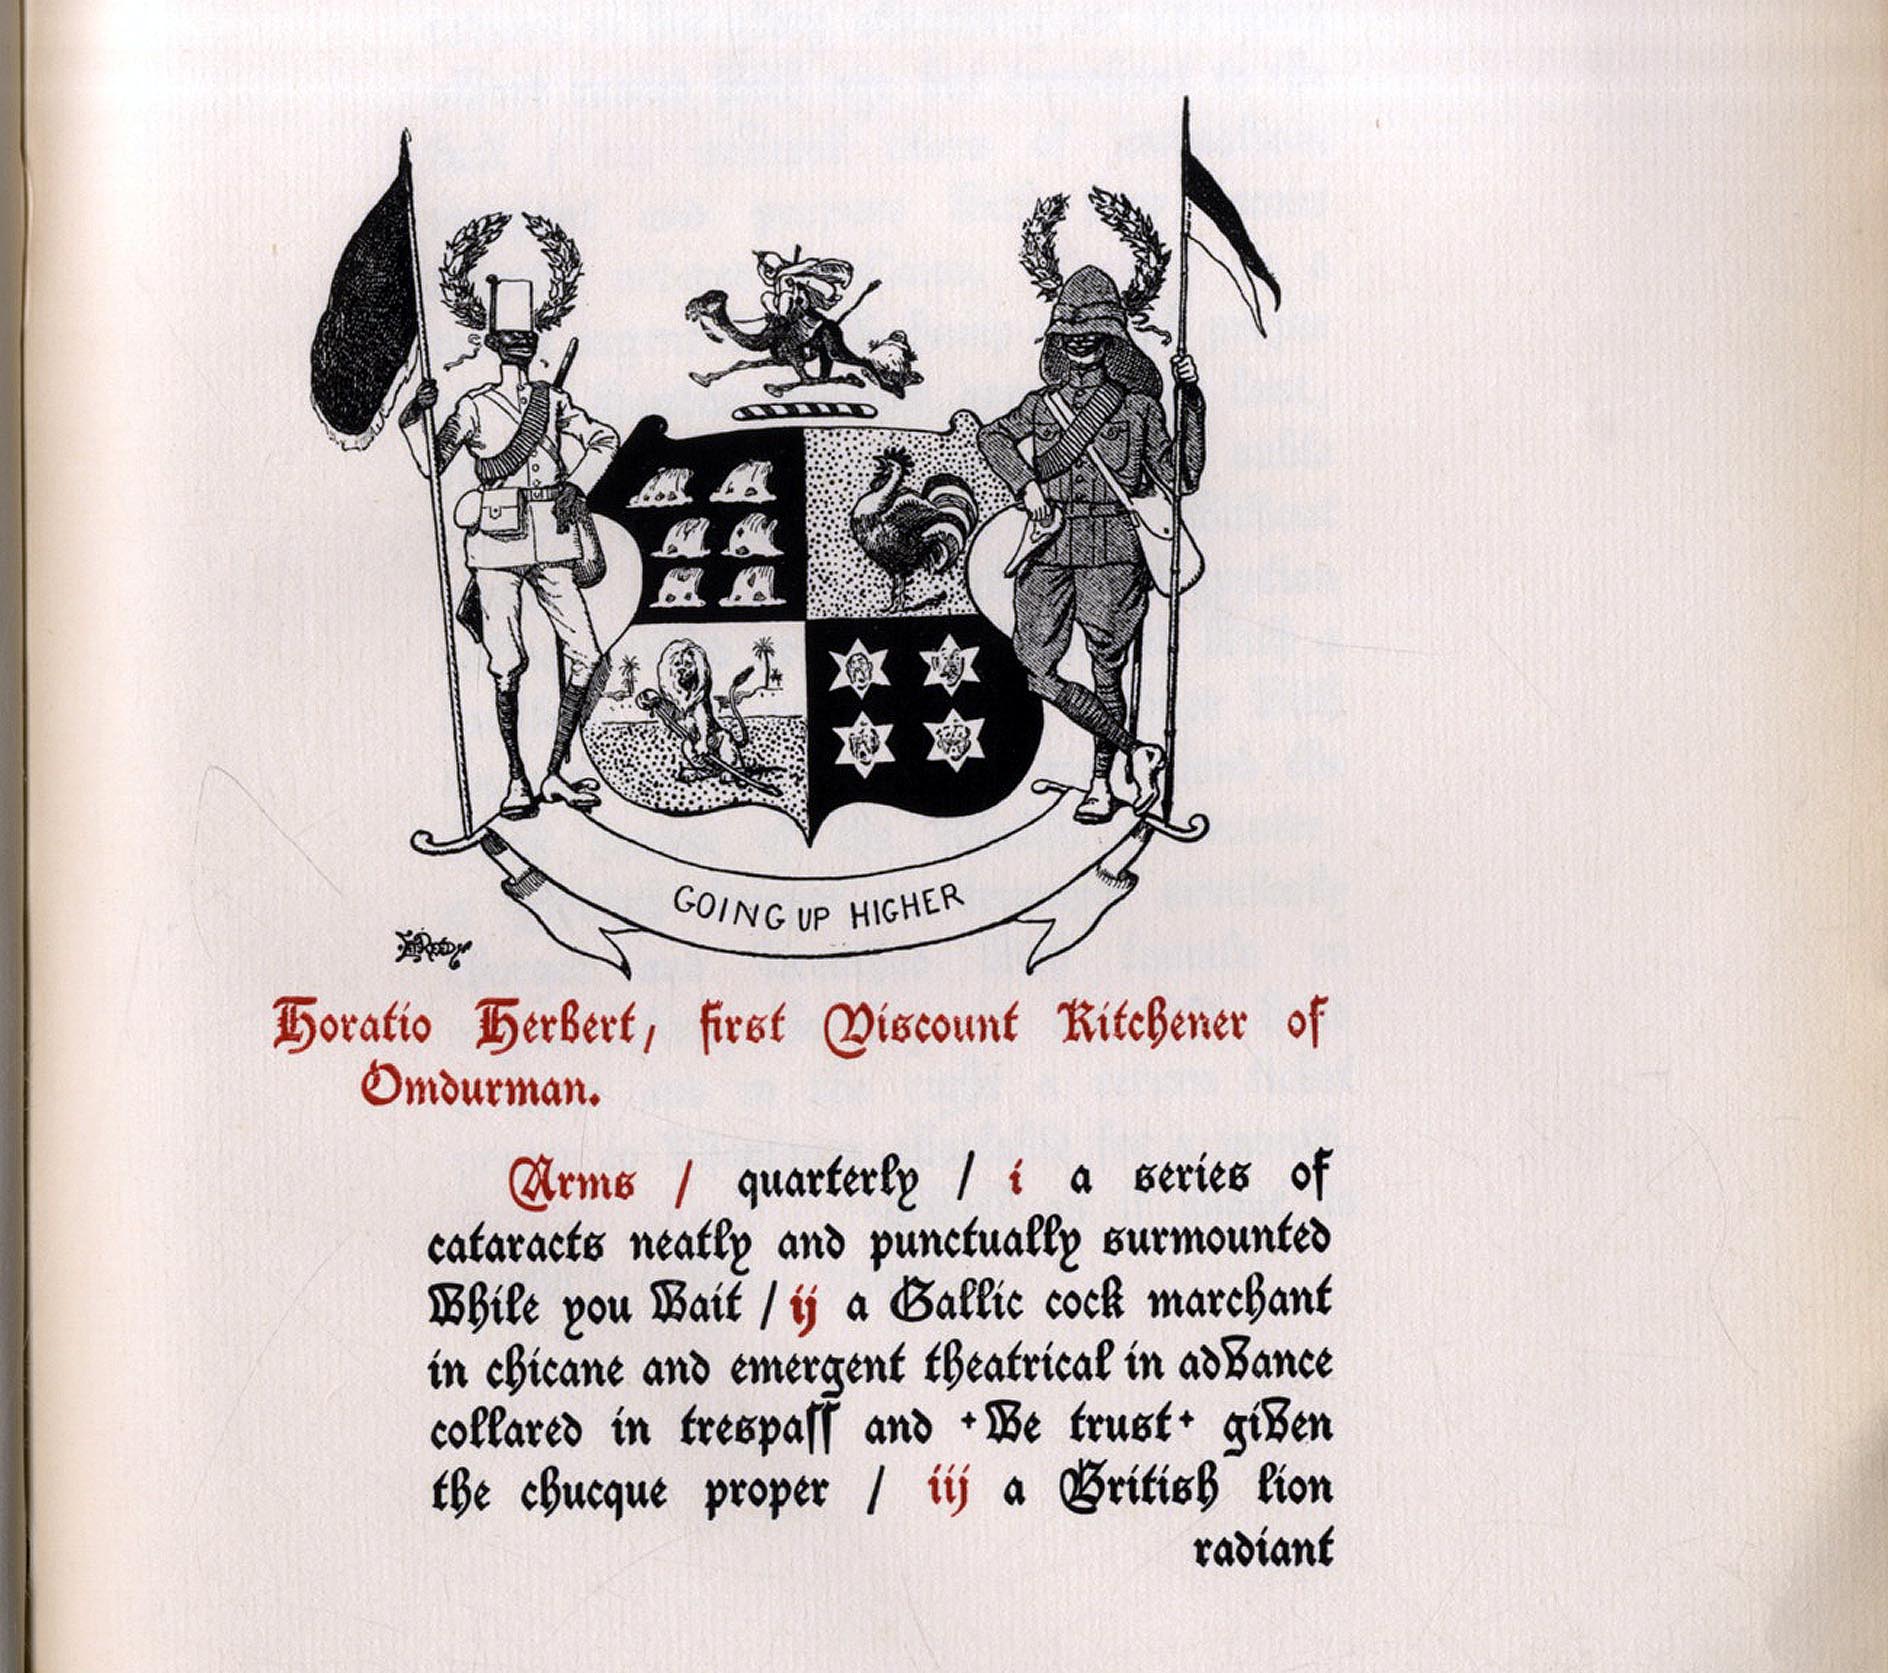 GOING UP HIGHER
E.T. REED
Horatio Herbert, first Viscount Kitchener of
Omdurman.
Arms / quarterly / i a series of
cataracts neatly and punctually surmounted
While you Wait / ij a Gallic cock marchant
in chicane and emergent theatrical in advance
collared in trespass and + We trust + given
the chucque proper / iij a British lion
radiant